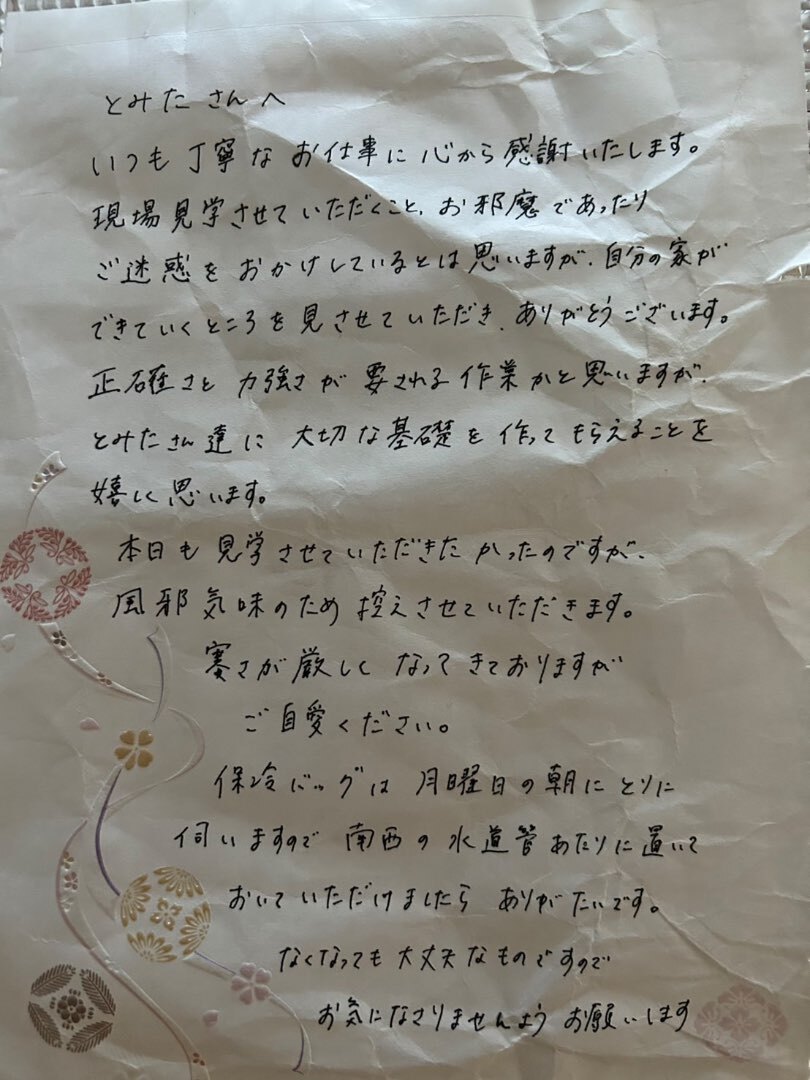 とみたさんへ
いつも丁寧なお仕事に心から感謝いたします。
現場見学させていただくこと、お邪魔であったり
ご迷惑をおかけしているとは思いますが、自分の家が
できていくところを見させていただき、ありがとうございます。
正確さと力強さが要される作業かと思いますが、
とみたさん達に大切な基礎を作ってもらえることを
嬉しく思います。
本日も見学させていただきたかったのですが、
風邪気味のため控えさせていただきます。
寒さが厳しくなってきておりますが
ご自愛ください。
保冷バッグは月曜日の朝にとりに
伺いますので南西の水道管あたりに置いて
おいていただけましたらありがたいです。
なくなっても大丈夫なものですので
お気になさりませんようお願いします